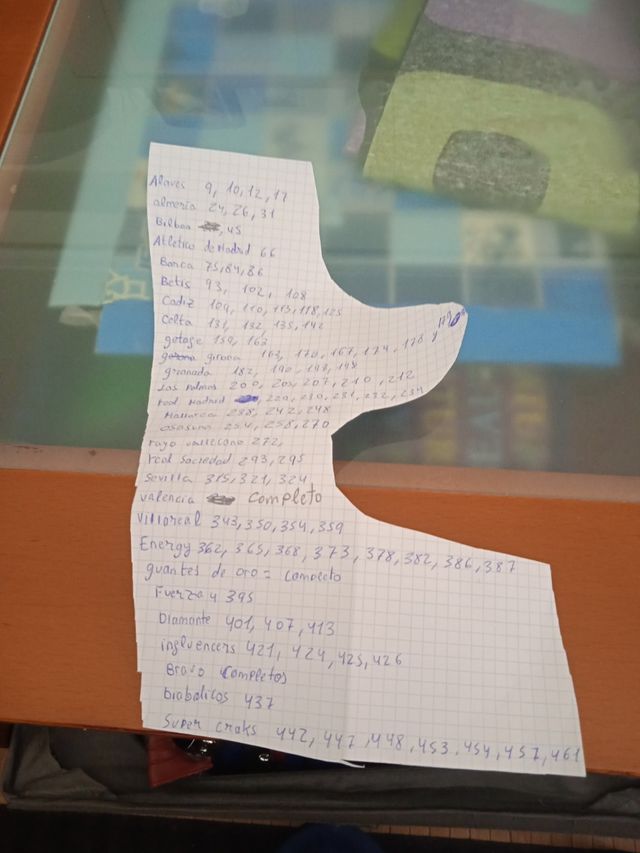 Alaves 9, 10, 12, 17
almeria 24, 26, 31
Bilbao , 45
Atletico de Madrid 66
Barca 75, 84, 86
Betis 93, 102, 108
Cadiz 109, 110, 115, 118, 125
Celta 131, 132, 135, 142
getafe 159, 162
girona 163, 170, 167, 174, 178
granada 182, 190,
Las Palmas 200, 205, 207, 210, 212
real Madrid 220, 230, 231, 232, 234
Mallorca 238, 242, 248
osasuna 254, 258, 270
rayo vallecano 272,
real Sociedad 293, 295
Sevilla 315, 321, 324
valencia completo
Villoreal 343, 350, 354, 359
Energy 362, 365, 368, 373, 378, 382, 386, 387
guantes de oro = completo
Fuerza 4 395
Diamante 401, 407, 413
influencers 421, 424, 425, 426
Bravo Completos
Diabolicos 437
Super craks 442, 447, 448, 453, 454, 457, 461